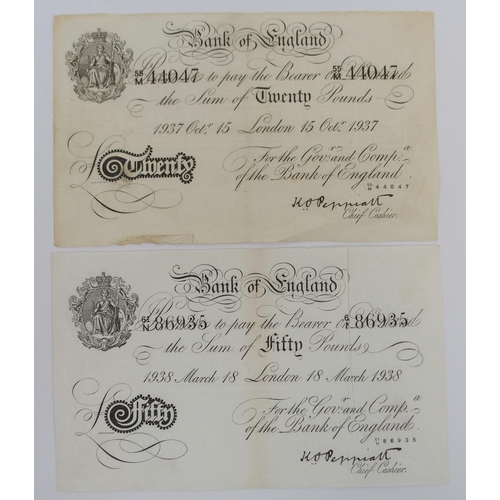 Bank of England
55/M 44047 to pay the Bearer on Demand 55/M 44047
the Sum of Twenty Pounds
1937 Octr. 15 London 15 Octr. 1937
For the Govr. and Compa.
£ Twenty of the Bank of England.
55/M 44047
K.O. Peppiatt
Chief Cashier.
Bank of England
61/N 86935 to pay the Bearer on Demand 61/N 86935
the Sum of Fifty Pounds
1938 March 18 London 18 March 1938
For the Govr. and Compa.
£ Fifty of the Bank of England.
61/N 86935
K.O. Peppiatt
Chief Cashier.